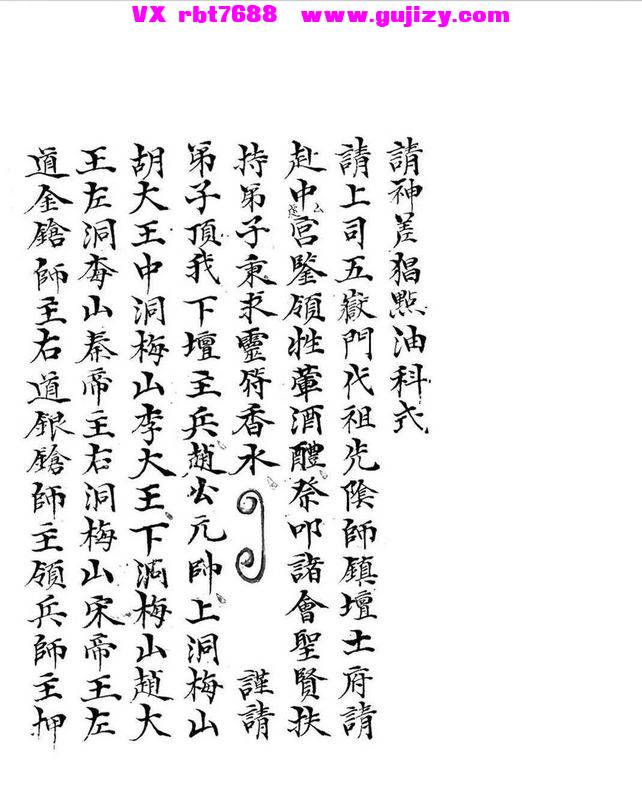 VX rbt7688 www.gujizy.com
請神差猖點油科式
請上司五嶽門代祖先陰師鎮壇土府請
赴中宮鑒領牲葷酒醴祭叩諸會聖賢扶
持弟子秉求靈符香水 謹請
弟子頂我下壇主兵趙公元帥上洞梅山
胡大王中洞梅山李大王下洞梅山趙大
王左洞梅山秦帝主右洞梅山宋帝王左
道金鎗師主右道銀鎗師主領兵師主押